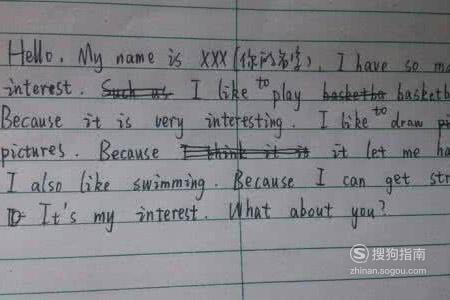 Hello. My name is XXX (你的名字). I have so
interest. Such as I like to play basketba
Because it is very interesting. I like to draw pi
pictures. Because I think it is it let me ha
I also like swimming. Because I can get str
It's my interest. What about you?
搜狗指南
zhinan.sogou.com